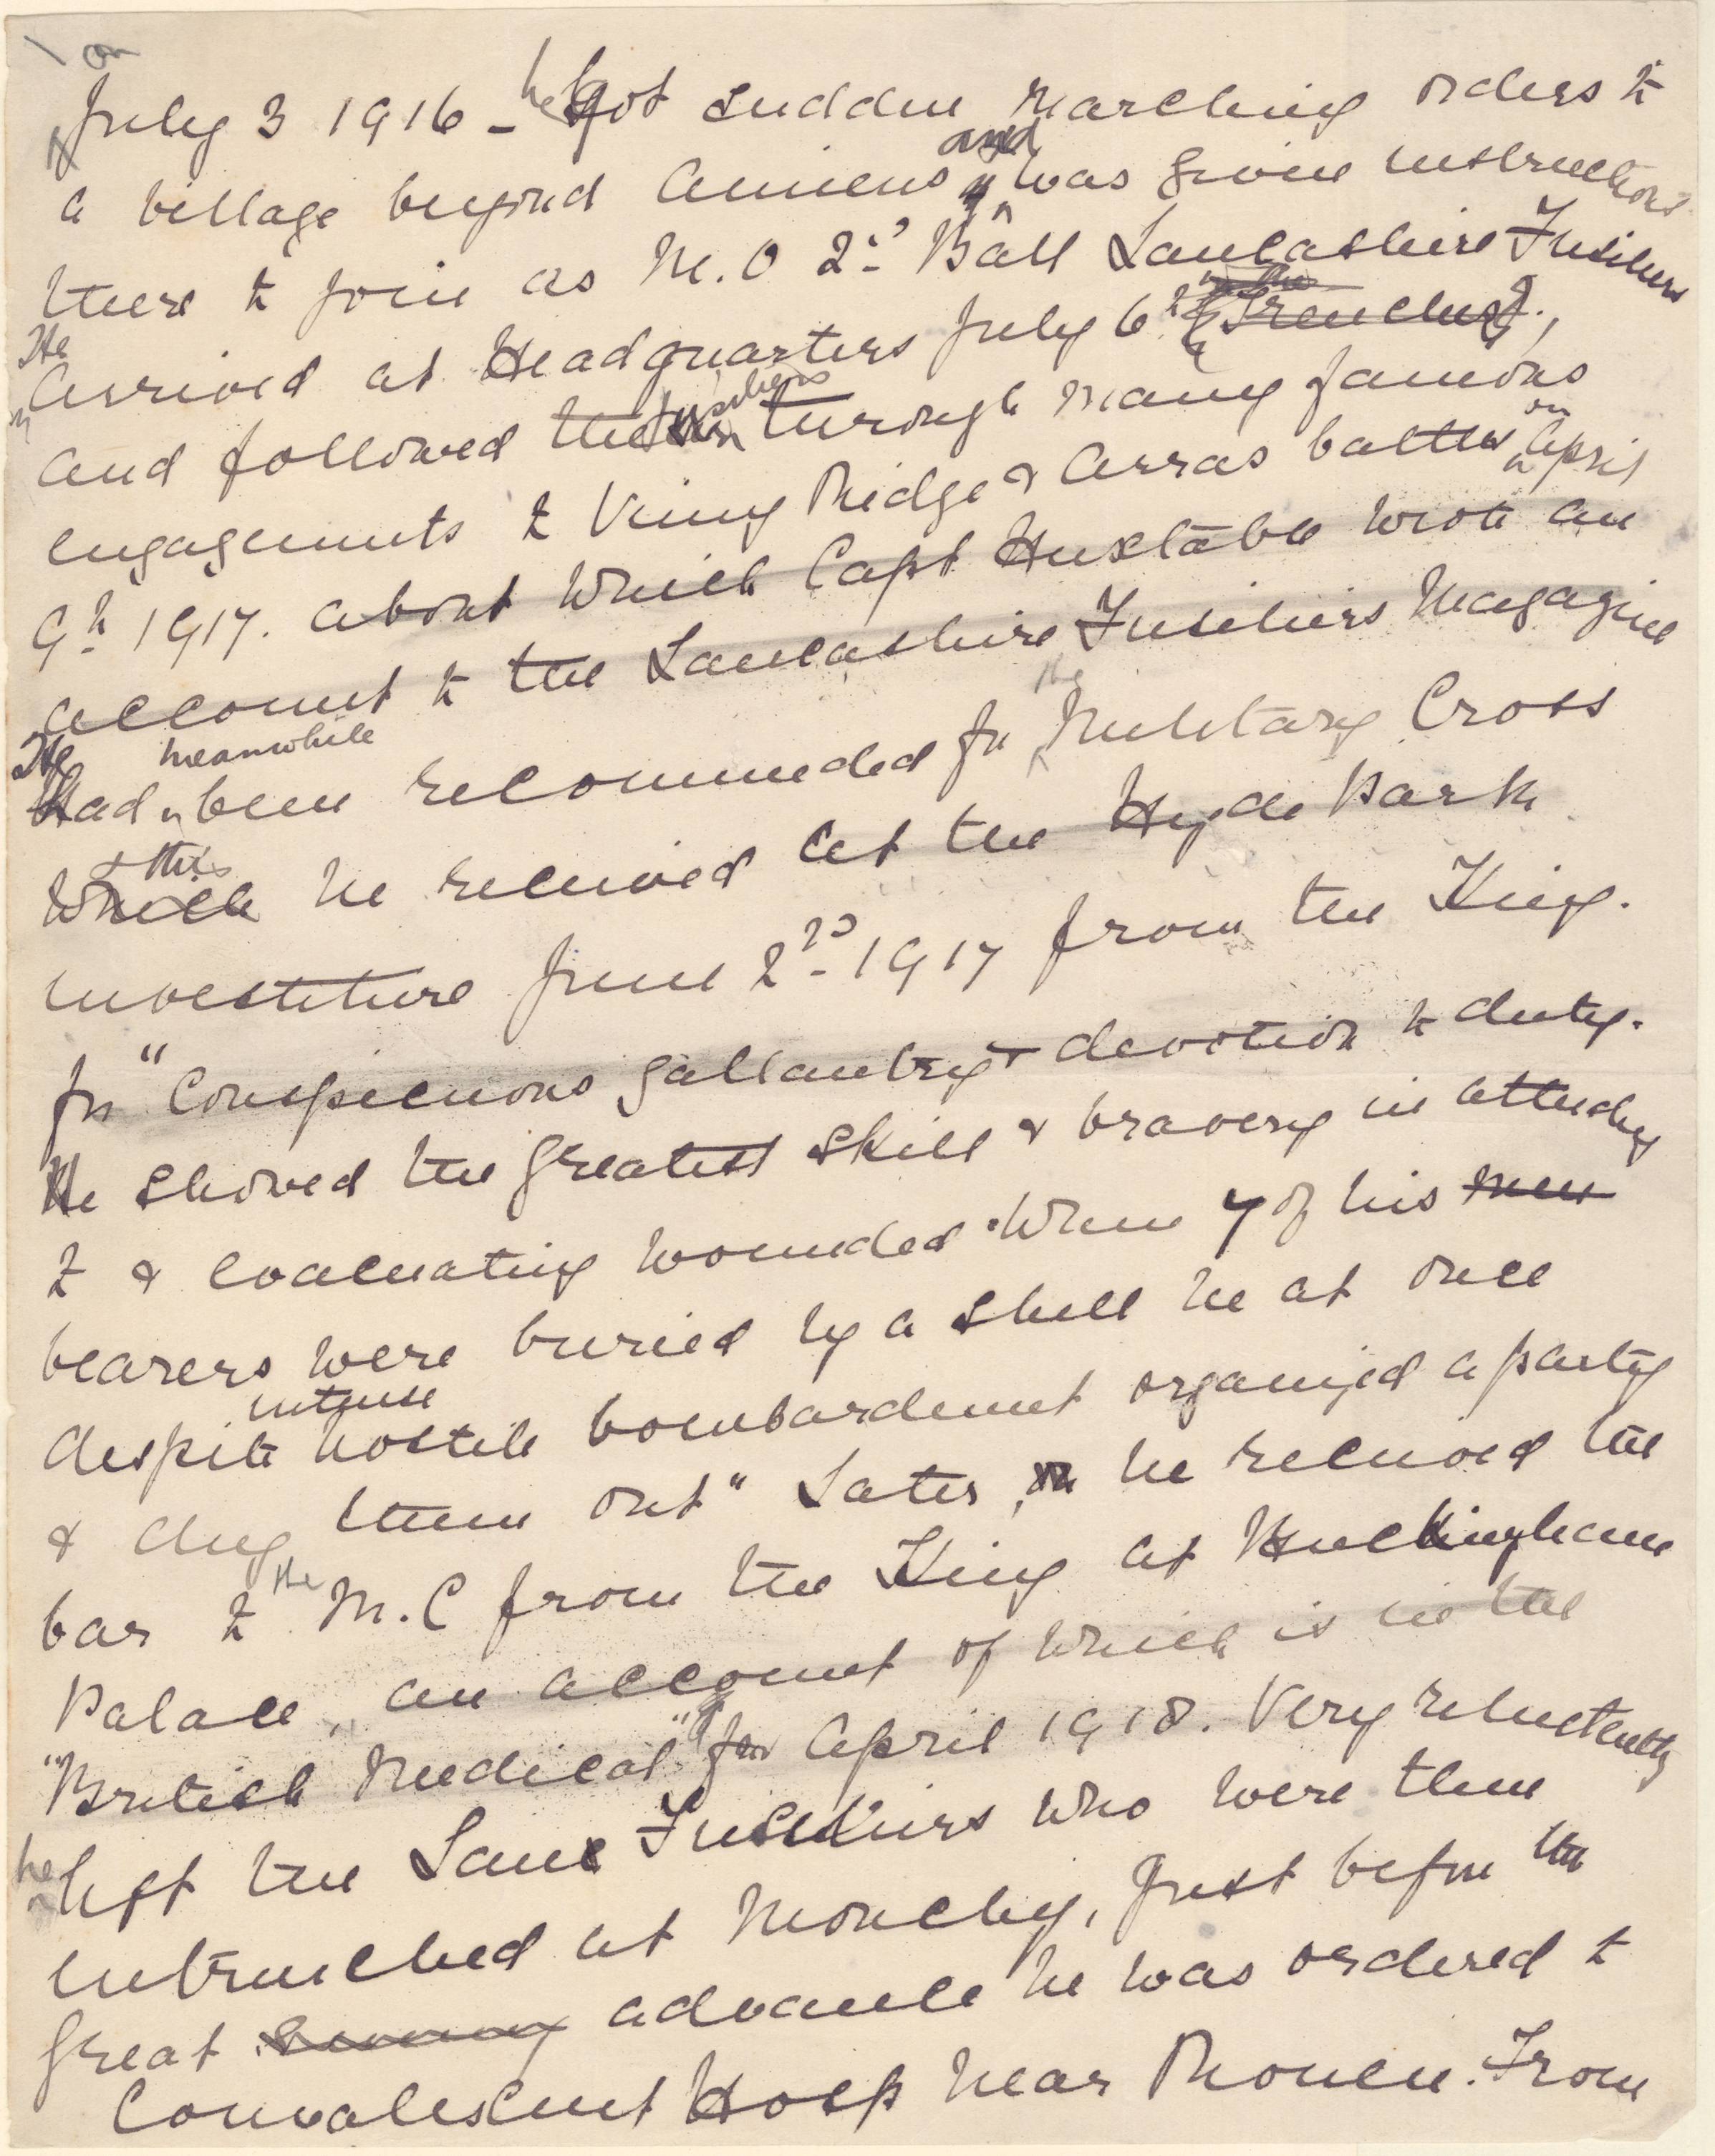 on
July 3 1916 - he got sudden marching orders to
a village beyond Amiens and was given instructions
there to join as M.O 2nd Batt Lancashire Fusiliers
He arrived at Headquarters July 6th in the Trenches,
and followed the Fusiliers through many famous
engagements to Vimy Ridge & Arras battles on April
9th 1917. about which Capt Huxtable wrote an
account to the Lancashire Fusiliers Magazine
He had meanwhile been recommended for the Military Cross
which & this he received at the Hyde Park
investiture June 2nd 1917 from the King.
for "Conspicuous gallantry & devotion to duty.
He showed the greatest skill & bravery in attending
to & evacuating wounded. When 7 of his men
bearers were buried by a shell he at once
despite intense hostile bombardment organized a party
& dug them out" Later, he received the
bar to the M.C from the King at Buckingham
Palace, an account of which is in the
"British Medical" for April 1918. Very reluctantly
he left the Lanc Fusiliers who were then
entrenched at Monchy, just before the
great advance he was ordered to
Convalescent Hosp near Rouen. From